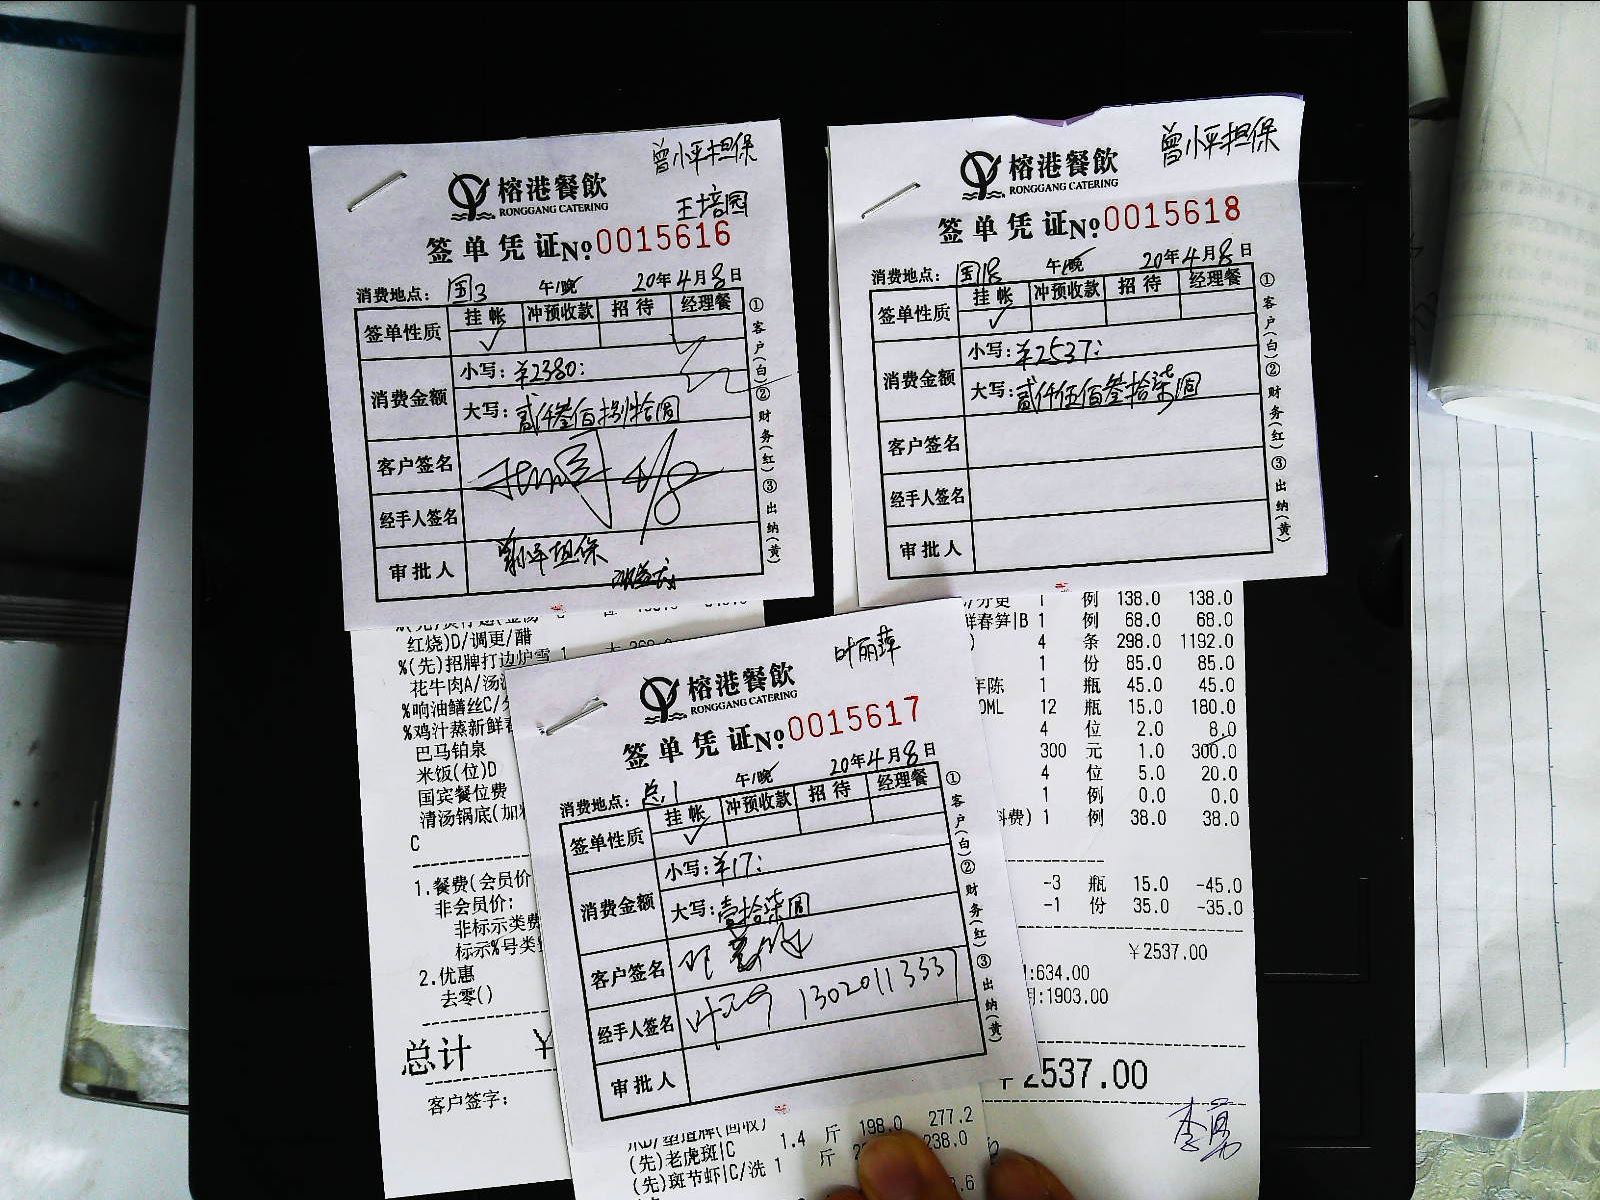 曾小平担保
榕港餐飲
RONGGANG CATERING
王培园
签单凭证№0015616
消费地点：国3 午/晚 20年4月8日
签单性质 挂帐 冲预收款 招待 经理餐
✓
消费金额 小写：¥2380：
大写：贰仟叁佰捌拾圆
客户签名
4/8
经手人签名
审批人 曾小平担保
①客户(白)②财务(红)③出纳(黄)
曾小平担保
榕港餐飲
RONGGANG CATERING
签单凭证№0015618
消费地点：国18 午/晚 20年4月8日
签单性质 挂帐 冲预收款 招待 经理餐
✓
消费金额 小写：¥2537：
大写：贰仟伍佰叁拾柒圆
客户签名
经手人签名
审批人
①客户(白)②财务(红)③出纳(黄)
红烧)D/调更/醋
%(先)招牌打边炉雪 1
花牛肉A/汤
%响油鳝丝C/
%鸡汁蒸新鲜
巴马铂泉
米饭(位)D
国宾餐位费
清汤锅底(加
C
1.餐费(会员价
非会员价:
非标示类费
标示%号类
2.优惠
去零()
总计 ¥
客户签字:
叶丽萍
榕港餐飲
RONGGANG CATERING
签单凭证№0015617
消费地点：总1 午/晚 20年4月8日
签单性质 挂帐 冲预收款 招待 经理餐
✓
消费金额 小写：¥17：
大写：壹拾柒圆
客户签名
经手人签名 13020113337
审批人
①客户(白)②财务(红)③出纳(黄)
1.4 斤 198.0 277.2
(先)老虎斑|C
(先)斑节虾|C/洗 1 斤 238.0
/分更 1 例 138.0 138.0
鲜春笋|B 1 例 68.0 68.0
) 4 条 298.0 1192.0
1 份 85.0 85.0
年陈 1 瓶 45.0 45.0
0ML 12 瓶 15.0 180.0
4 位 2.0 8.0
300 元 1.0 300.0
4 位 5.0 20.0
1 例 0.0 0.0
料费) 1 例 38.0 38.0
-3 瓶 15.0 -45.0
-1 份 35.0 -35.0
¥2537.00
:634.00
:1903.00
¥2537.00
李勇